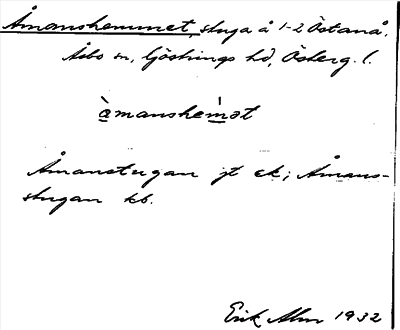 Åmanshemmet, stuga å 1-2 Östanå,
Åsbo sn, Göstrings hd, Österg. l.
àmanshem̀ət
Åmanstugan jt ek; Åmans-
stugan kb.
Erik Alm 1932